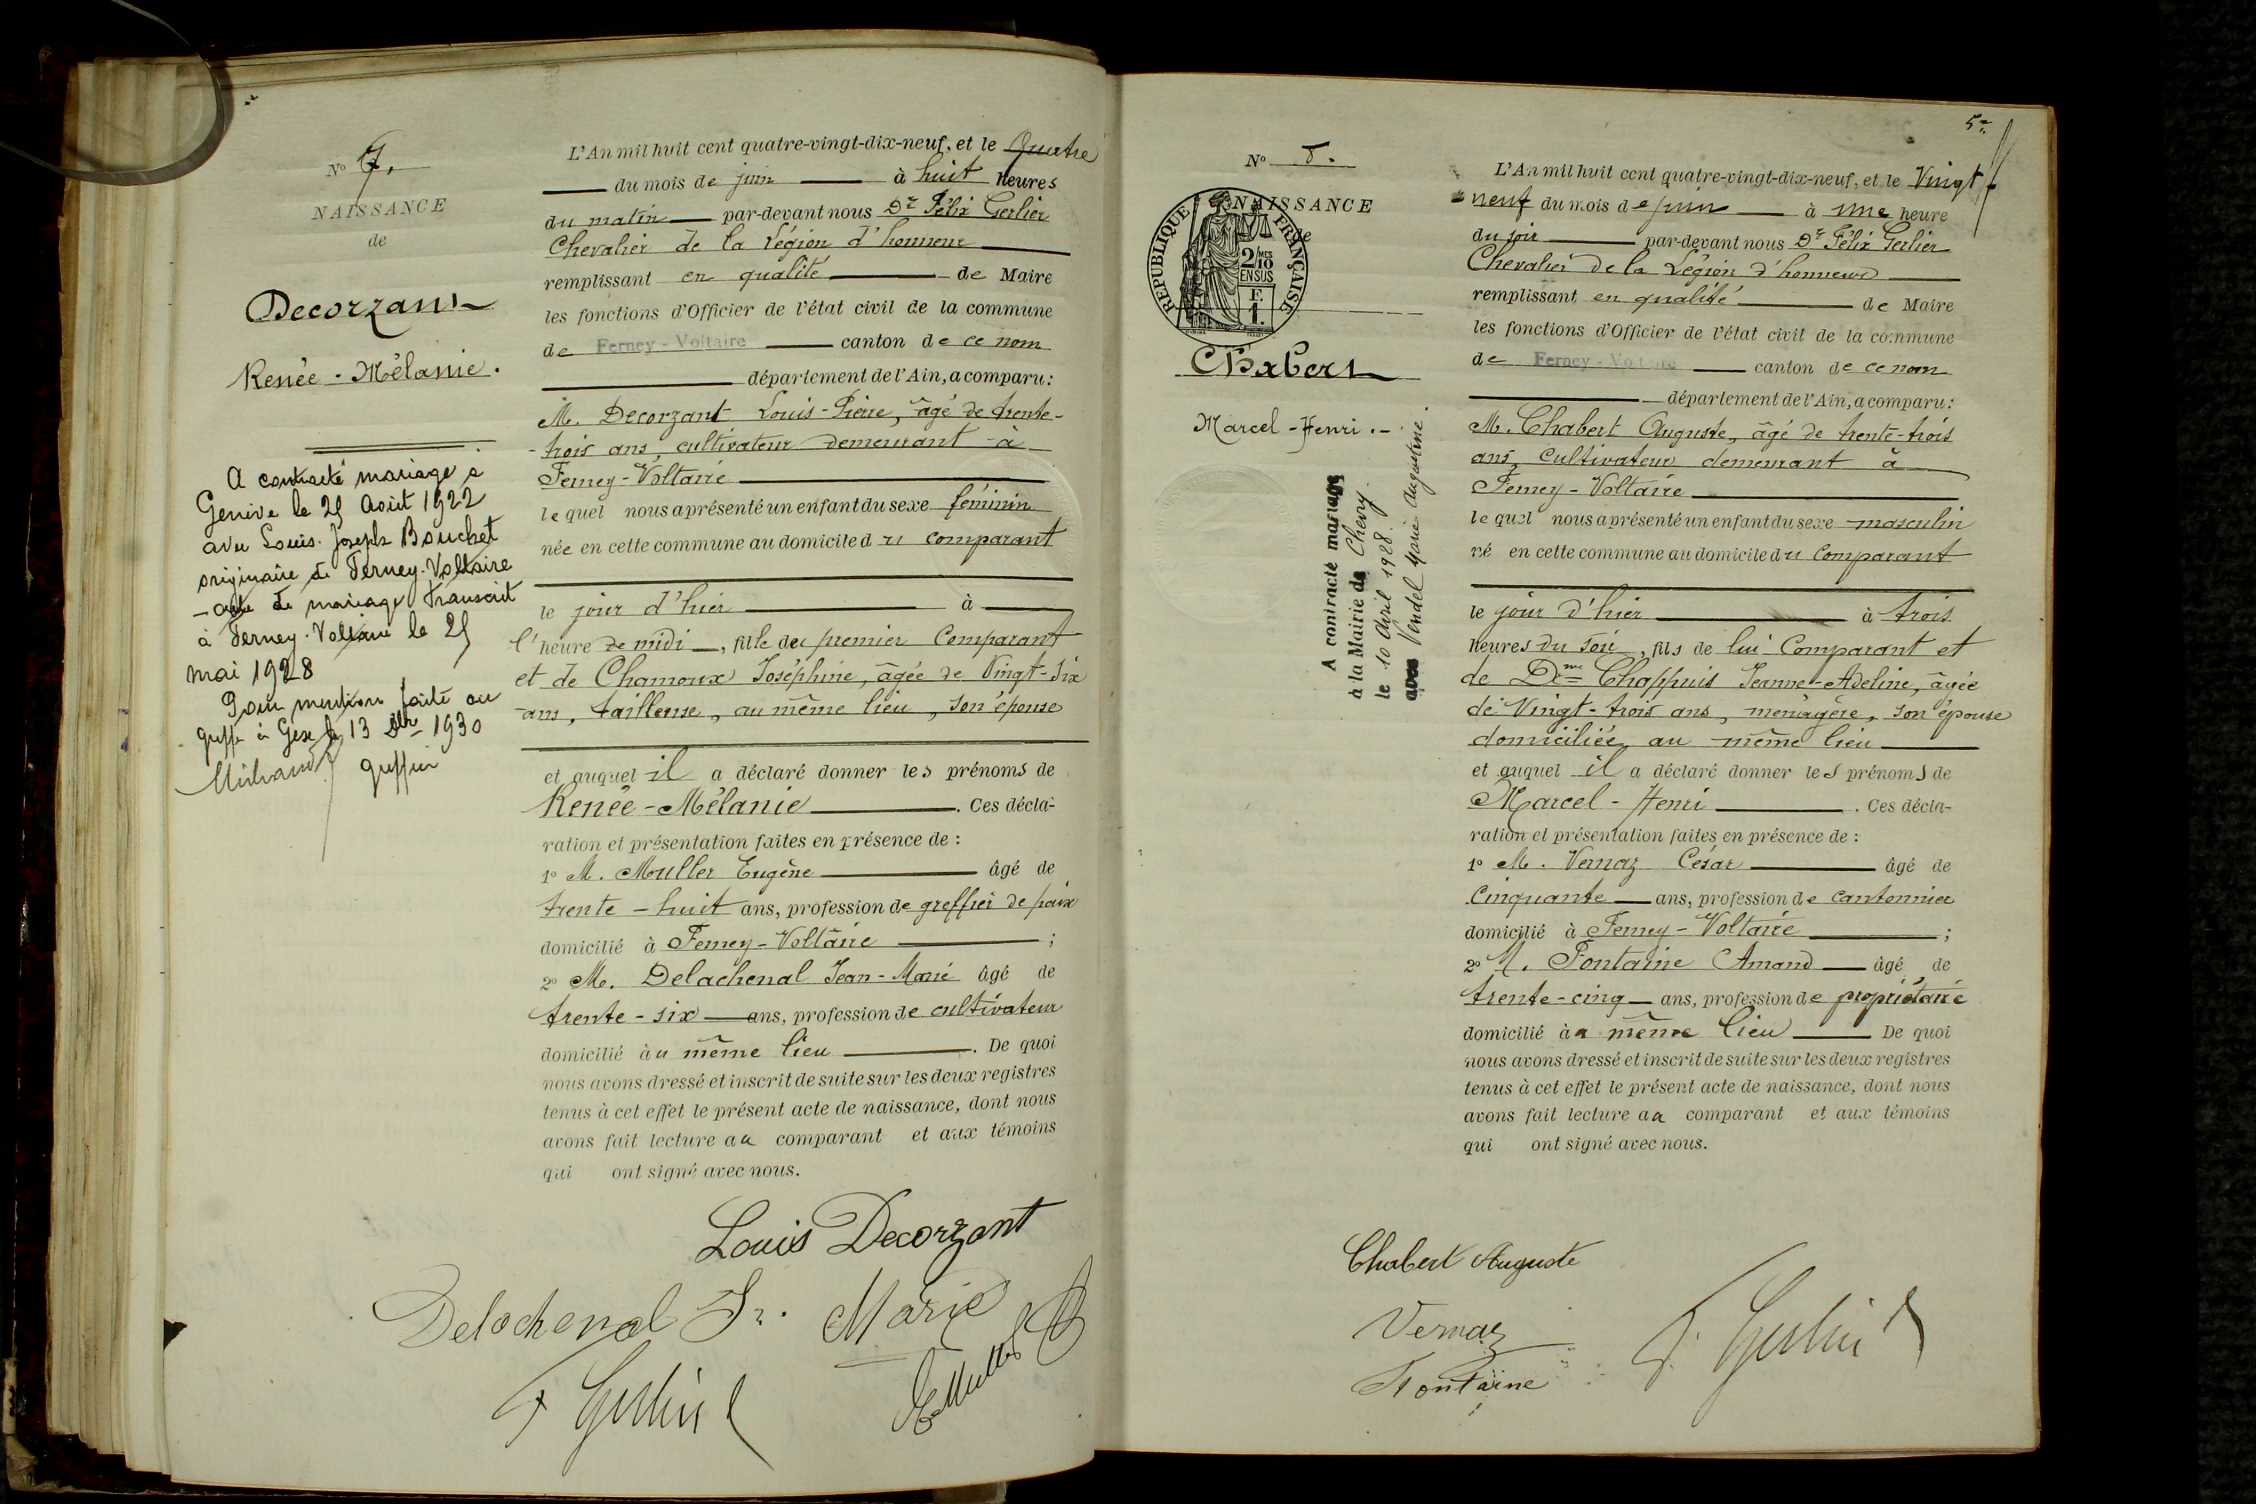 No 7.
NAISSANCE
de
Decorzant
Renée-Mélanie.
A contracté mariage à
Genève le 25 Août 1922
avec Louis-Joseph Bouchet
originaire de Ferney-Voltaire
- acte de mariage transcrit
à Ferney-Voltaire le 25
mai 1928
Pour mention faite au
greffe à Gex le 13 1930
greffier
L'An mil huit cent quatre-vingt-dix-neuf, et le Quatre
du mois de juin à huit heures
du matin par-devant nous Dr Félix Gerlier
Chevalier de la Légion d'honneur
remplissant en qualité de Maire
les fonctions d'Officier de l'état civil de la commune
de Ferney-Voltaire canton de ce nom
département de l'Ain, a comparu:
M. Decorzant Louis-Pierre, âgé de trente-
-trois ans, cultivateur demeurant à
Ferney-Voltaire
lequel nous a présenté un enfant du sexe féminin
née en cette commune au domicile du comparant
le jour d'hier à
l'heure de midi, fille du premier Comparant
et de Chamoux Joséphine, âgée de Vingt-six
ans, tailleuse, au même lieu, son épouse
et auquel il a déclaré donner les prénoms de
Renée-Mélanie. Ces décla-
ration et présentation faites en présence de :
1o M. Muller Eugène âgé de
trente-huit ans, profession de greffier de paix
domicilié à Ferney-Voltaire ;
2o M. Delachenal Jean-Marie âgé de
trente-six ans, profession de cultivateur
domicilié au même lieu. De quoi
nous avons dressé et inscrit de suite sur les deux registres
tenus à cet effet le présent acte de naissance, dont nous
avons fait lecture au comparant et aux témoins
qui ont signé avec nous.
Louis Decorzant
Delachenal Jn. Marie
E Muller
F Gerlier
5
No 8.
NAISSANCE
de
RÉPUBLIQUE FRANÇAISE
2/10MES
EN SUS
F.
1.
Chabert
Marcel-Henri.-
A contracté mariage
à la Mairie de Chevry.
le 10 Avril 1928.
avec Vendel Marie Augustine.
L'An mil huit cent quatre-vingt-dix-neuf, et le Vingt-
neuf du mois de juin à une heure
du soir par-devant nous Dr Félix Gerlier
Chevalier de la Légion d'honneur
remplissant en qualité de Maire
les fonctions d'Officier de l'état civil de la commune
de Ferney-Voltaire canton de ce nom
département de l'Ain, a comparu:
M. Chabert Auguste, âgé de trente-trois
ans, cultivateur demeurant à
Ferney-Voltaire
lequel nous a présenté un enfant du sexe masculin
né en cette commune au domicile du Comparant
le jour d'hier à trois
heures du soir, fils de lui Comparant et
de Dme Chappuis Jeanne-Adeline, âgée
de Vingt-trois ans, ménagère, son épouse
domiciliée au même lieu
et auquel il a déclaré donner les prénoms de
Marcel-Henri. Ces décla-
ration et présentation faites en présence de :
1o M. Vernaz César âgé de
Cinquante ans, profession de cantonnier
domicilié à Ferney-Voltaire ;
2o M. Fontaine Amand âgé de
trente-cinq ans, profession de propriétaire
domicilié au même lieu De quoi
nous avons dressé et inscrit de suite sur les deux registres
tenus à cet effet le présent acte de naissance, dont nous
avons fait lecture au comparant et aux témoins
qui ont signé avec nous.
Chabert Auguste
Vernaz
Fontaine
F. Gerlier